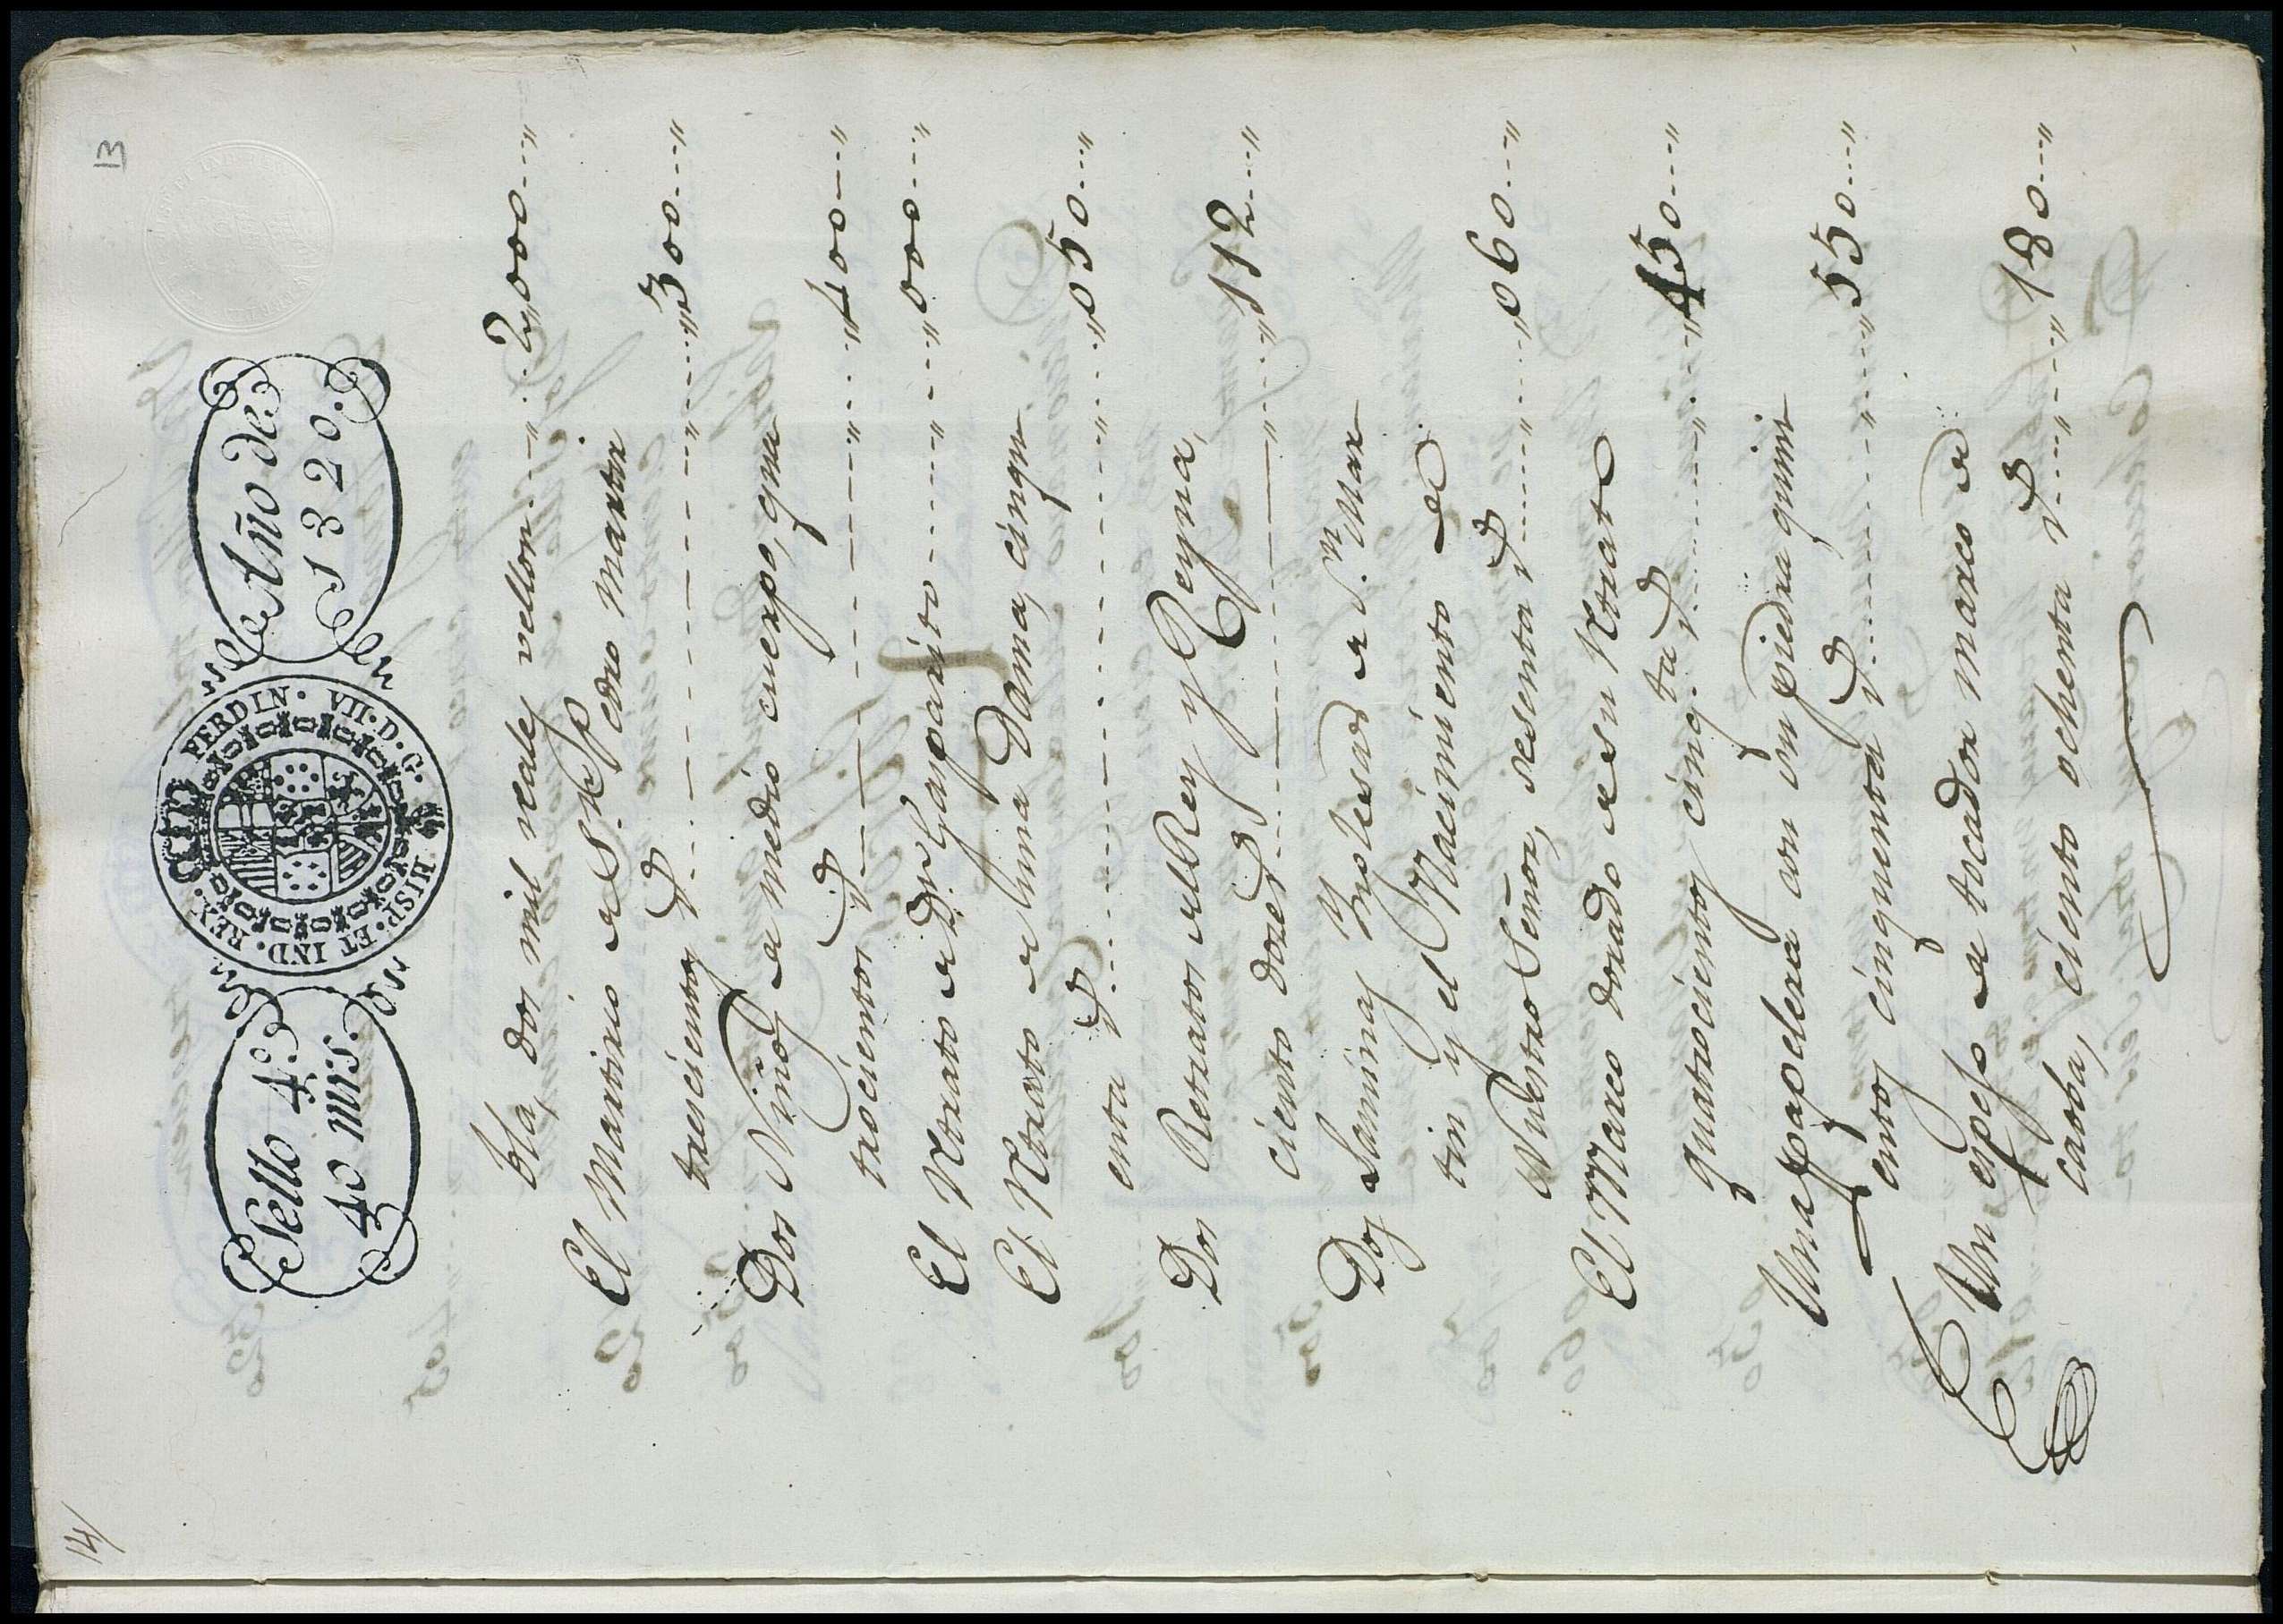 14
13
Sello 4.º
40 mrs.
FERDIN. VII. D. G. HISP. ET IND. REX.
Año de
1820.
bla, dos mil reales vellon 2,,000
El Martirio de S.n Pedro Martir
trescientos 300
Dos Niños de medio cuerpo, qua
trocientos 400
El Retrato de D.n Gasparito 000
El Retrato de una Dama, cinqu
enta 050
Dos Retratos del Rey y Reyna,
ciento doze 112
Dos Laminas Yglesias de S.n Mar
tin y el Nacimiento de
Nuestro Señor, sesenta 060
El Marco dorado de su Retrato
quatrocientos cinq.ta 450
Una papelera con su piedra quini
entos cinquenta 550
Un espejo de tocador marco de
caoba, ciento ochenta 180